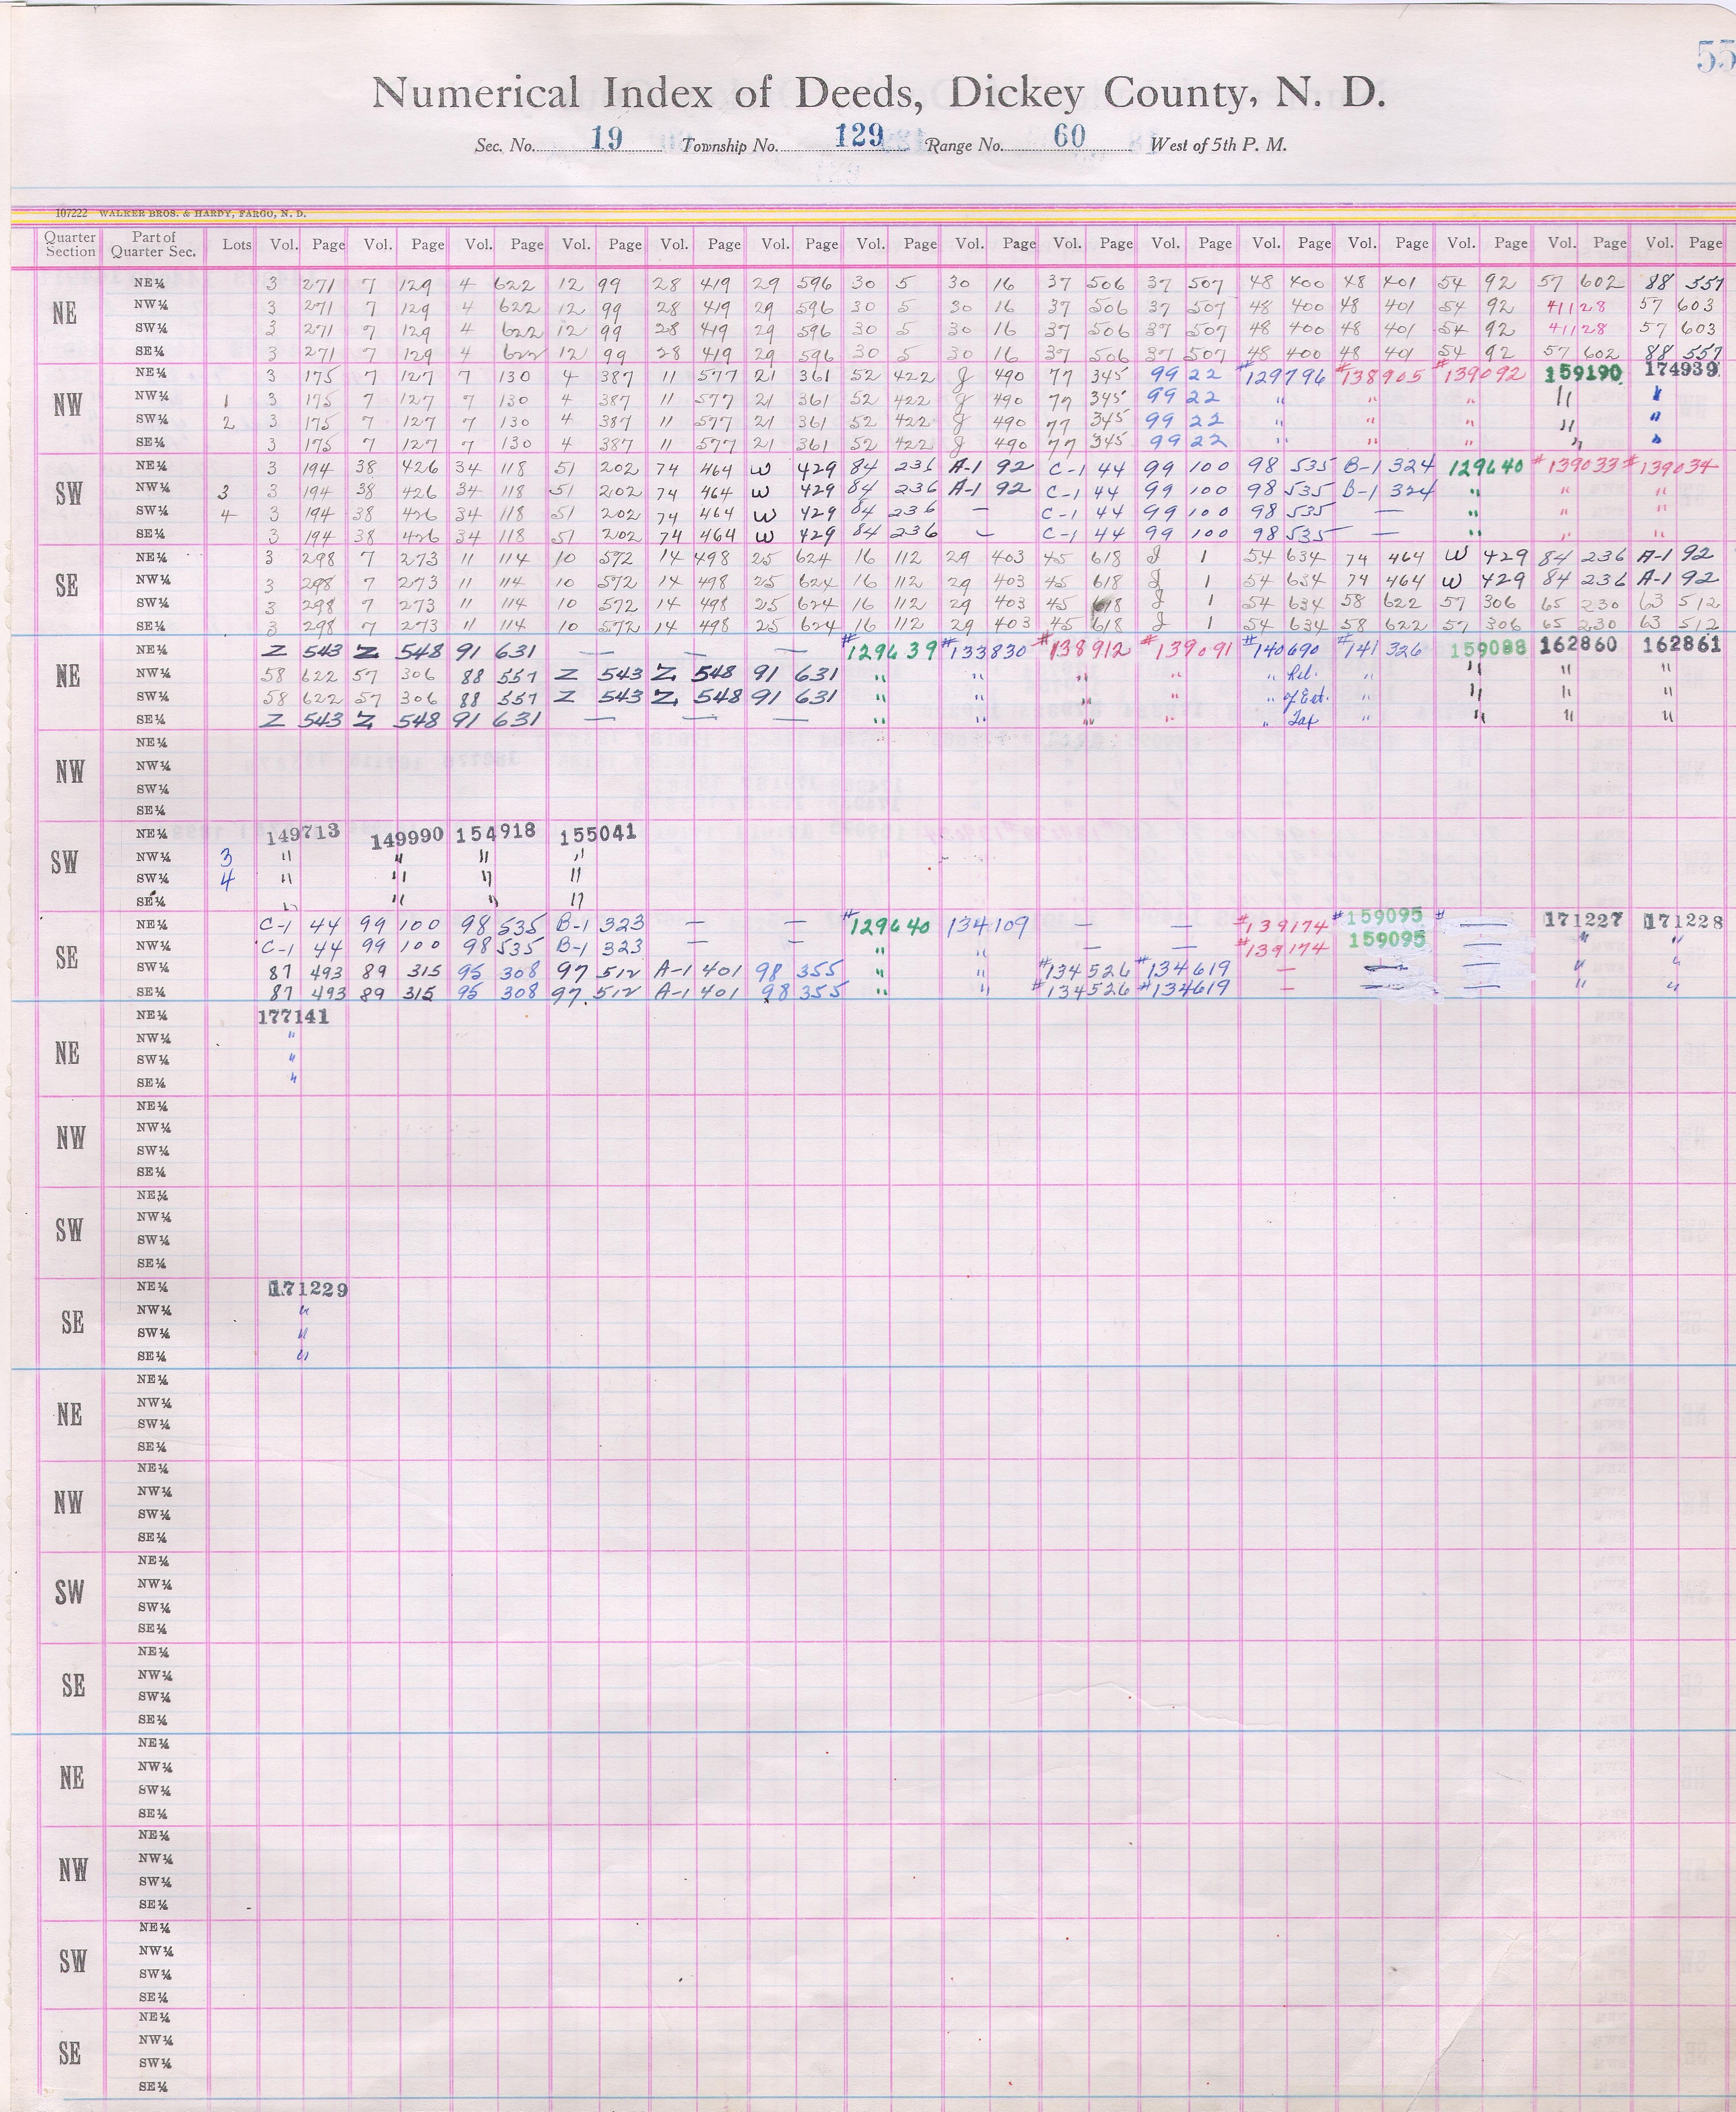 55
Numerical Index of Deeds, Dickey County, N. D.
Sec. No. 19 Township No. 129 Range No. 60 West of 5th P. M.
107222 WALKER BROS. & HARDY, FARGO, N. D.
Quarter Section Part of Quarter Sec. Lots Vol. Page Vol. Page Vol. Page Vol. Page Vol. Page Vol. Page Vol. Page Vol. Page Vol. Page Vol. Page Vol. Page Vol. Page Vol. Page Vol. Page Vol. Page
NE
NE¼ 3 271 7 129 4 622 12 99 28 419 29 596 30 5 30 16 37 506 37 507 48 400 48 401 54 92 57 602 88 557
NW¼ 3 271 7 129 4 622 12 99 28 419 29 596 30 5 30 16 37 506 37 507 48 400 48 401 54 92 41 128 57 603
SW¼ 3 271 7 129 4 622 12 99 28 419 29 596 30 5 30 16 37 506 37 507 48 400 48 401 54 92 41 128 57 603
SE¼ 3 271 7 129 4 622 12 99 28 419 29 596 30 5 30 16 37 506 37 507 48 400 48 401 54 92 57 602 88 557
NW
NE¼ 3 175 7 127 7 130 4 387 11 577 21 361 52 422 J 490 77 345 99 22 #129796 #138905 #139092 159190 174939
NW¼ 1 3 175 7 127 7 130 4 387 11 577 21 361 52 422 J 490 77 345 99 22 " " " " "
SW¼ 2 3 175 7 127 7 130 4 387 11 577 21 361 52 422 J 490 77 345 99 22 " " " " "
SE¼ 3 175 7 127 7 130 4 387 11 577 21 361 52 422 J 490 77 345 99 22 " " " " "
SW
NE¼ 3 194 38 426 34 118 51 202 74 464 W 429 84 236 A-1 92 C-1 44 99 100 98 535 B-1 324 129640 #139033 #139034
NW¼ 3 3 194 38 426 34 118 51 202 74 464 W 429 84 236 A-1 92 C-1 44 99 100 98 535 B-1 324 " " "
SW¼ 4 3 194 38 426 34 118 51 202 74 464 W 429 84 236 — C-1 44 99 100 98 535 — " " "
SE¼ 3 194 38 426 34 118 51 202 74 464 W 429 84 236 — C-1 44 99 100 98 535 — " " "
SE
NE¼ 3 298 7 273 11 114 10 572 14 498 25 624 16 112 29 403 45 618 J 1 54 634 74 464 W 429 84 236 A-1 92
NW¼ 3 298 7 273 11 114 10 572 14 498 25 624 16 112 29 403 45 618 J 1 54 634 74 464 W 429 84 236 A-1 92
SW¼ 3 298 7 273 11 114 10 572 14 498 25 624 16 112 29 403 45 618 J 1 54 634 58 622 57 306 65 230 63 512
SE¼ 3 298 7 273 11 114 10 572 14 498 25 624 16 112 29 403 45 618 J 1 54 634 58 622 57 306 65 230 63 512
NE
NE¼ Z 543 Z 548 91 631 — — — #129639 #133830 #138912 #139091 #140690 #141326 159088 162860 162861
NW¼ 58 622 57 306 88 557 Z 543 Z 548 91 631 " " " " " Rel. " " " "
SW¼ 58 622 57 306 88 557 Z 543 Z 548 91 631 " " " " " of Est. " " " "
SE¼ Z 543 Z 548 91 631 — — — " " " " " Tax " " " "
NW
NE¼
NW¼
SW¼
SE¼
SW
NE¼ 149713 149990 154918 155041
NW¼ 3 " " " "
SW¼ 4 " " " "
SE¼ " " " "
SE
NE¼ C-1 44 99 100 98 535 B-1 323 — — #129640 134109 — — #139174 #159095 # — 171227 171228
NW¼ C-1 44 99 100 98 535 B-1 323 — — " " — — #139174 159095 — " "
SW¼ 87 493 89 315 95 308 97 512 A-1 401 98 355 " " #134526 #134619 — — — " "
SE¼ 87 493 89 315 95 308 97 512 A-1 401 98 355 " " #134526 #134619 — — — " "
NE
NE¼ 177141
NW¼ "
SW¼ "
SE¼ "
NW
NE¼
NW¼
SW¼
SE¼
SW
NE¼
NW¼
SW¼
SE¼
SE
NE¼ 171229
NW¼ "
SW¼ "
SE¼ "
NE
NE¼
NW¼
SW¼
SE¼
NW
NE¼
NW¼
SW¼
SE¼
SW
NE¼
NW¼
SW¼
SE¼
SE
NE¼
NW¼
SW¼
SE¼
NE
NE¼
NW¼
SW¼
SE¼
NW
NE¼
NW¼
SW¼
SE¼
SW
NE¼
NW¼
SW¼
SE¼
SE
NE¼
NW¼
SW¼
SE¼